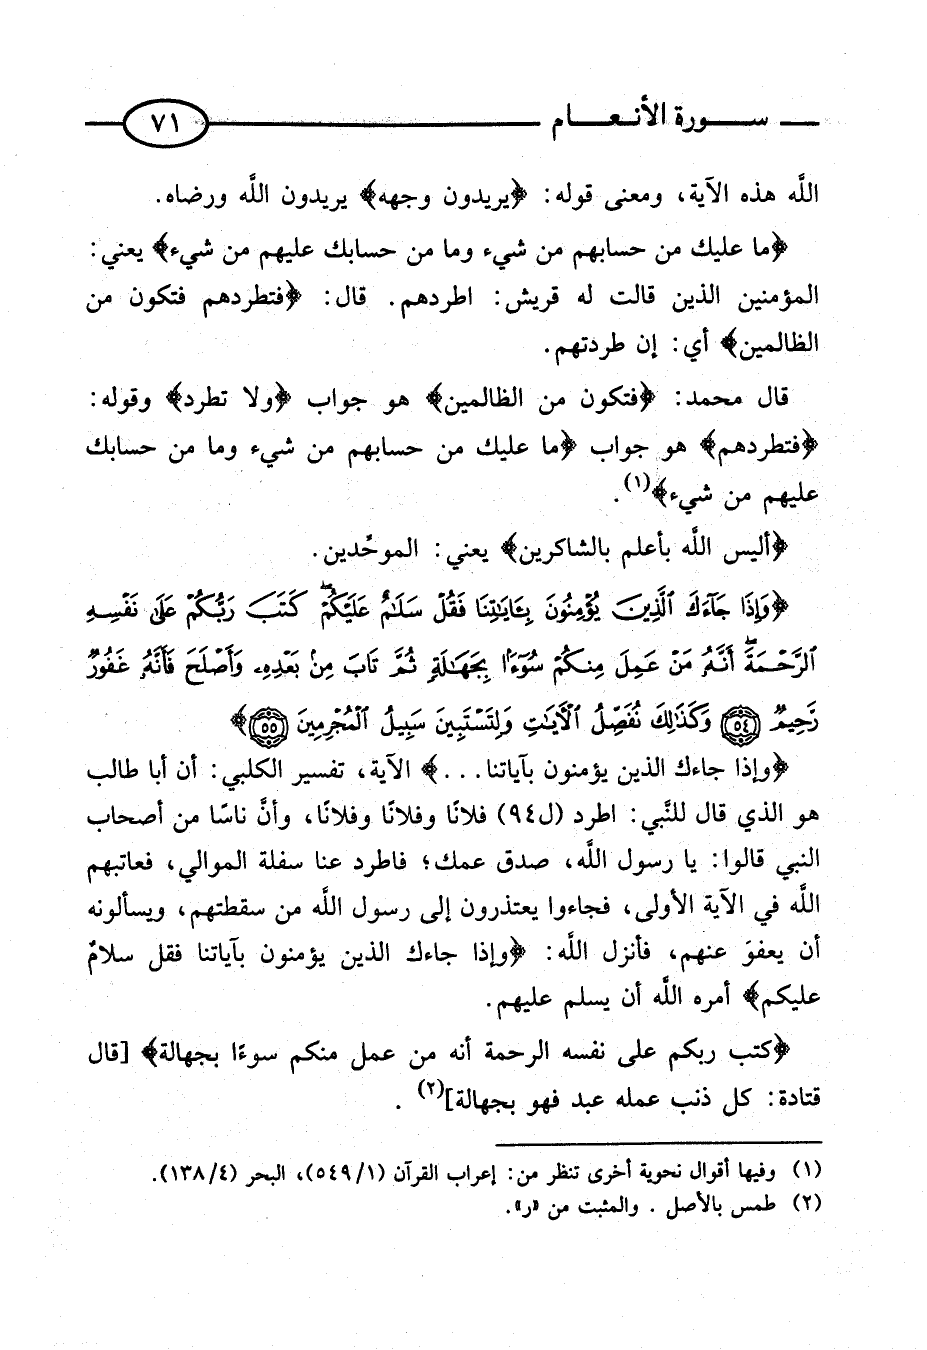 سورة الأنعام ٧١
اللَّه هذه الآية، ومعنى قوله: ﴿يريدون وجهه﴾ يريدون اللَّه ورضاه.
﴿ما عليك من حسابهم من شيء وما من حسابك عليهم من شيء﴾ يعني:
المؤمنين الذين قالت له قريش: اطردهم. قال: ﴿فتطردهم فتكون من
الظالمين﴾ أي: إن طردتهم.
قال محمد: ﴿فتكون من الظالمين﴾ هو جواب ﴿ولا تطرد﴾ وقوله:
﴿فتطردهم﴾ هو جواب ﴿ما عليك من حسابهم من شيء وما من حسابك
عليهم من شيء﴾(١).
﴿أليس اللَّه بأعلم بالشاكرين﴾ يعني: الموحِّدين.
﴿وَإِذَا جَآءَكَ ٱلَّذِينَ يُؤْمِنُونَ بِـَٔايَـٰتِنَا فَقُلْ سَلَـٰمٌ عَلَيْكُمْ ۖ كَتَبَ رَبُّكُمْ عَلَىٰ نَفْسِهِ
ٱلرَّحْمَةَ ۖ أَنَّهُۥ مَنْ عَمِلَ مِنكُمْ سُوٓءًۢا بِجَهَـٰلَةٍ ثُمَّ تَابَ مِنۢ بَعْدِهِۦ وَأَصْلَحَ فَأَنَّهُۥ غَفُورٌ
رَّحِيمٌ ٥٤ وَكَذَٰلِكَ نُفَصِّلُ ٱلْـَٔايَـٰتِ وَلِتَسْتَبِينَ سَبِيلُ ٱلْمُجْرِمِينَ ٥٥﴾
﴿وإذا جاءك الذين يؤمنون بآياتنا...﴾ الآية، تفسير الكلبي: أن أبا طالب
هو الذي قال للنَّبي: اطرد (ل٩٤) فلانًا وفلانًا وفلانًا، وأنَّ ناسًا من أصحاب
النبي قالوا: يا رسول اللَّه، صدق عمك؛ فاطرد عنا سفلة الموالي، فعاتبهم
اللَّه في الآية الأولى، فجاءوا يعتذرون إلى رسول اللَّه من سقطتهم، ويسألونه
أن يعفوَ عنهم، فأنزل اللَّه: ﴿وإذا جاءك الذين يؤمنون بآياتنا فقل سلامٌ
عليكم﴾ أمره اللَّه أن يسلم عليهم.
﴿كتب ربكم على نفسه الرحمة أنه من عمل منكم سوءًا بجهالة﴾ [قال
قتادة: كل ذنب عمله عبد فهو بجهالة](٢) .
(١) وفيها أقوال نحوية أخرى تنظر من: إعراب القرآن (٥٤٩/١)، البحر (١٣٨/٤).
(٢) طمس بالأصل . والمثبت من «ر».